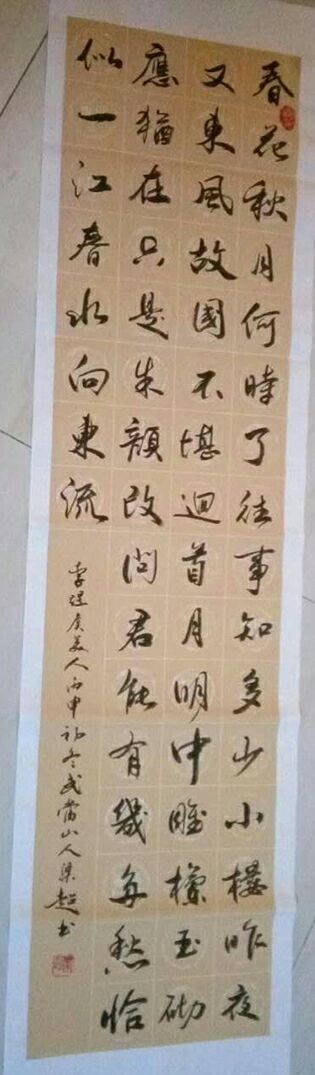 春花秋月何時了往事知多少小樓昨夜
又東風故國不堪迴首月明中雕欄玉砌
應猶在只是朱顏改問君能有幾多愁恰
似一江春水向東流
李煜虞美人丙申初冬武當山人梁超書